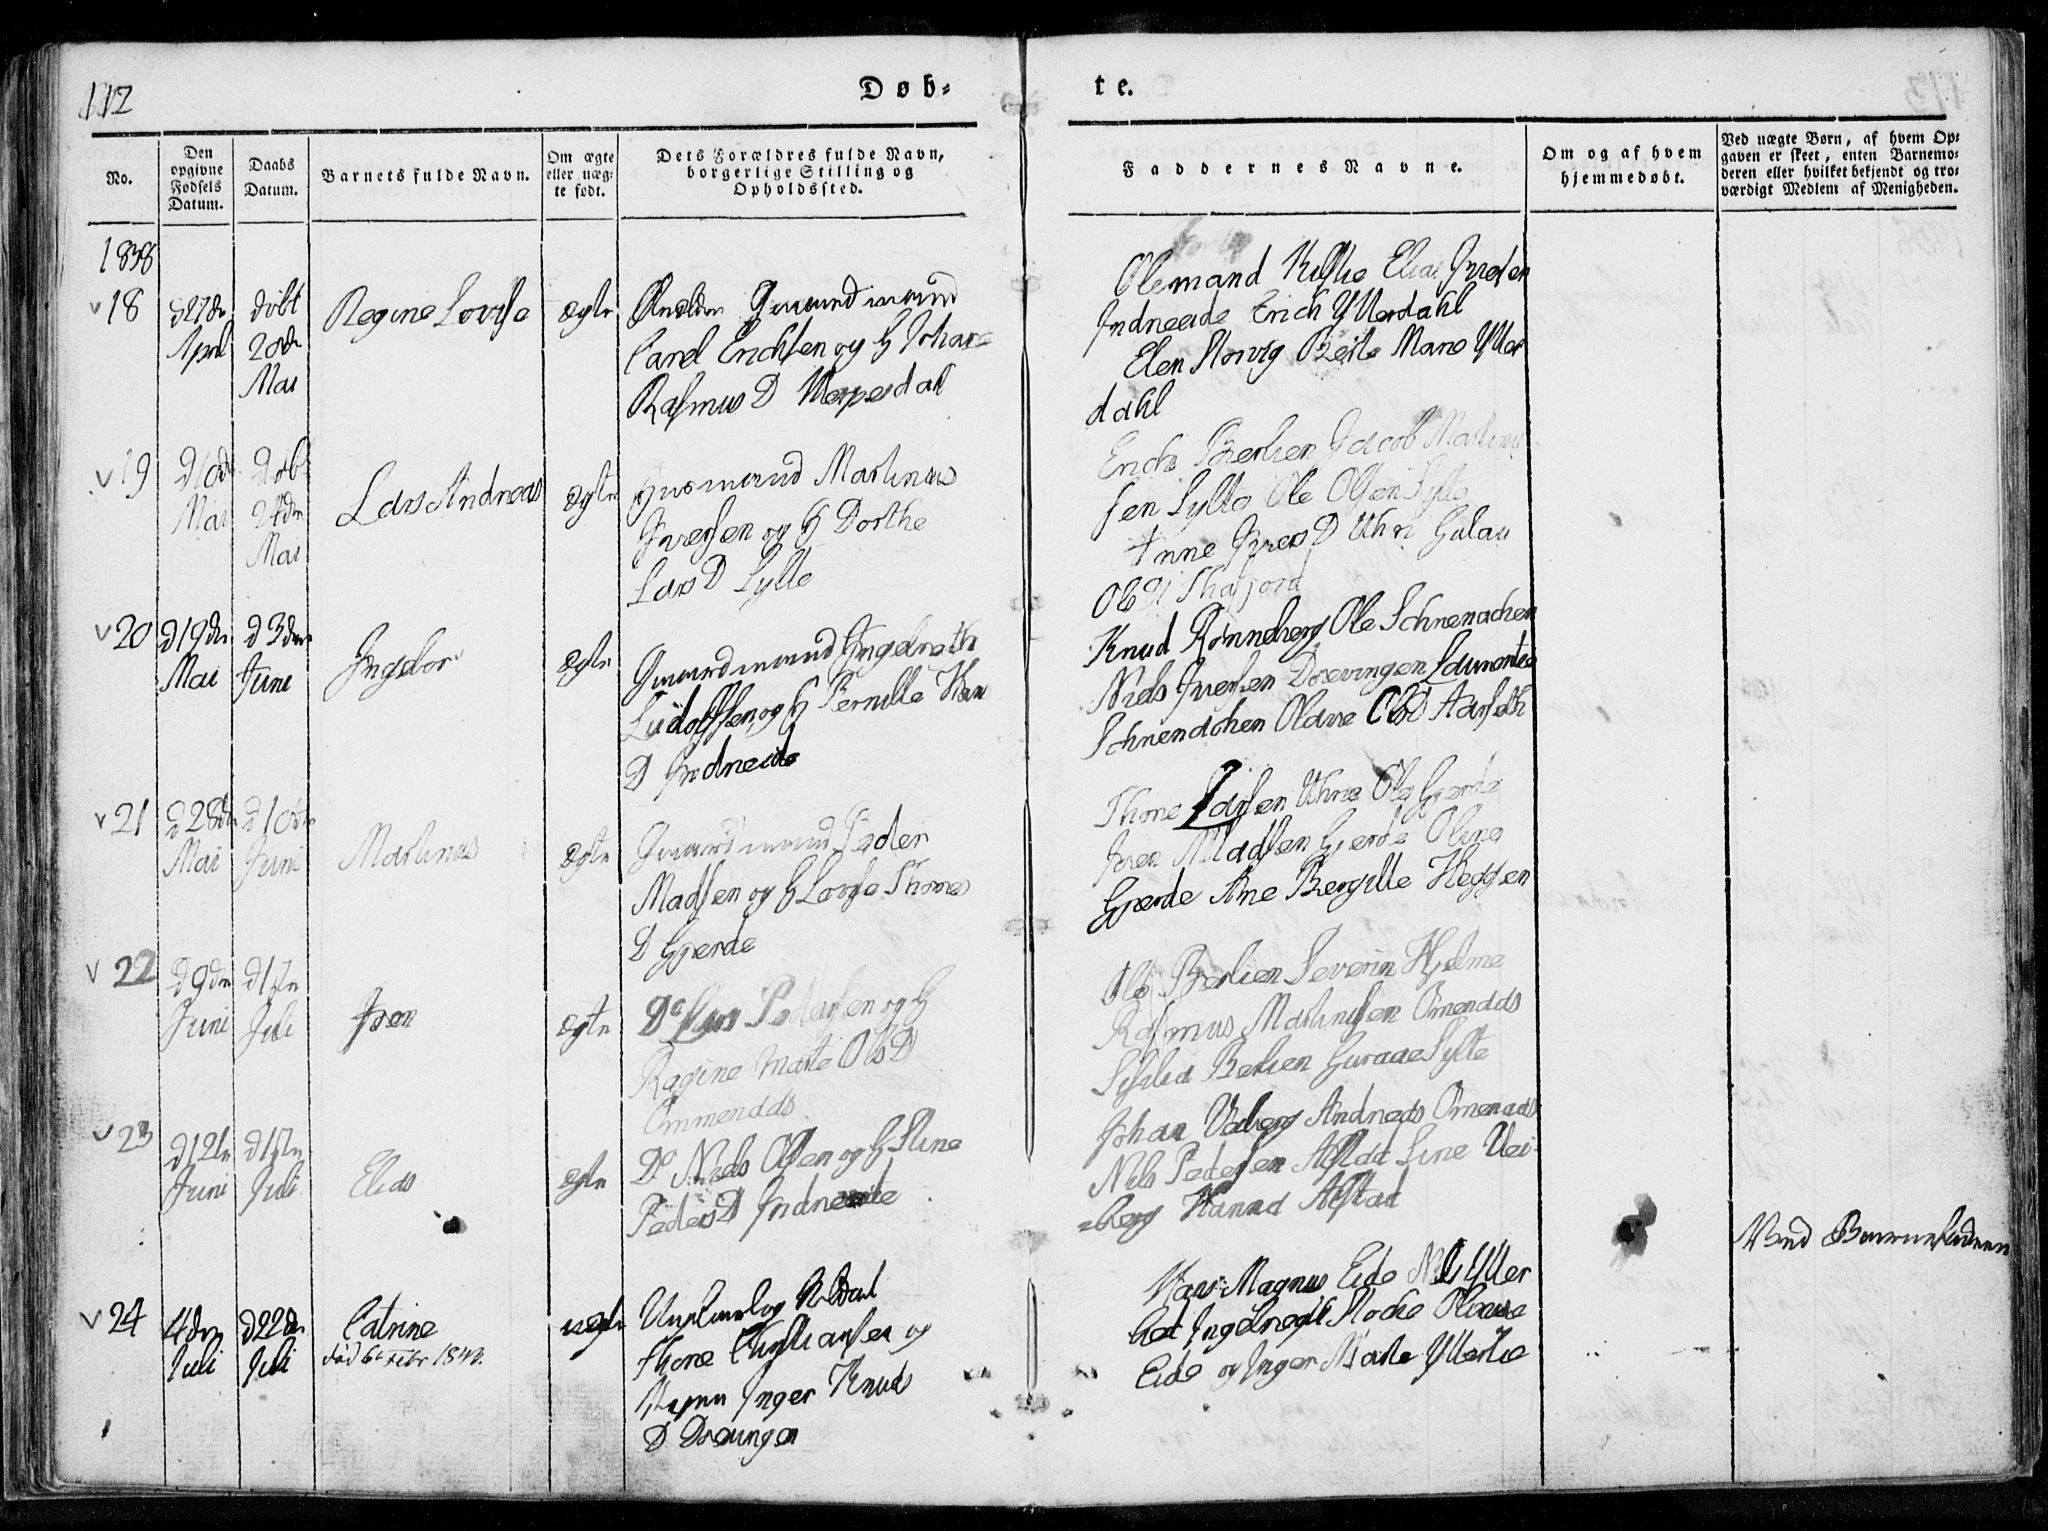 112
Døb-
te.
No.
Den opgivne Fødsels Datum.
Daabs Datum.
Barnets fulde Navn.
Om ægte eller uægte født.
Dets Forældres fulde Navn, borgerlige Stilling og Opholdssted.
Faddernes Navne.
Om og af hvem hjemmedøbt.
Ved uægte Børn, af hvem Opgaven er skeet, enten Barnemoderen eller hvilket bekjendt og troværdigt Medlem af Menigheden.
1838
18
d 27de April
døbt 20de Mai
Regine Lovise
ægte
Gaardmand
Carel Erichsen og H Johane
Rasmus D
Olemand Elias Iversen
Indneeide Erich Ytterdahl
Elen Berte Mane Ytter
dahl
19
d 10de Mai
Døbt 24de Mai
Lars Andreas
ægte
Husmand Martinus
Iversen og H Dorthe
Lars D Sylte
Erich Berlien Jacob Martinu
sen Sylte Ole Olsen Sylte
Anne Ivers D Uhri
Ols D Thafjord
20
d 19de Mai
d 3die Juni
Ingebor
ægte
Gaardmand Ingebreth
Ludolfsen og H Pernille Han
D Indneeide
Knud Rønneberg Ole
Niels Iversen Døevingen Laurentse
Olave Ols D Aarseth
21
d 28de Mai
d 10de Juni
Martinus
ægte
Gaardmand Peder
Madsen og H Lovise Thores
D Gjerde
Thore Larsen Uhne Ole Gjerde
Iver Madsen Gjerde Olina
Gjerde Ane Bergitte Heggen
22
d 9de Juni
d 1ste Juli
Iver
ægte
D<sup>o</sup> Lars Pedersen og H
Ragine Marte Ols D
Ommendds
Ole Berlien Severin Hjelme
Rasmus Martinusen Omendds
Berlien Guraae Sylte
23
d 12te Juni
d 1ste Juli
Elias
ægte
D<sup>o</sup> Niels Olsen og H Stine
Peders D Indneeide
Johan Andreas Omenads
Nils Pedersen Alstad Line Vei
=berg Hanna Alstad
24
4de Juli
d 22de Juli
Catrine
død 6te Febr 1843.
uægte
Ungkarl og
Thore Christiansen og
Pigen Inger Knuds
D Døevingen
Hans Magnus Eide Nils Ytter
Ingebregt Stoche Oline
Eide og Inger Marte Ytterlie
Ved Barnefaderen